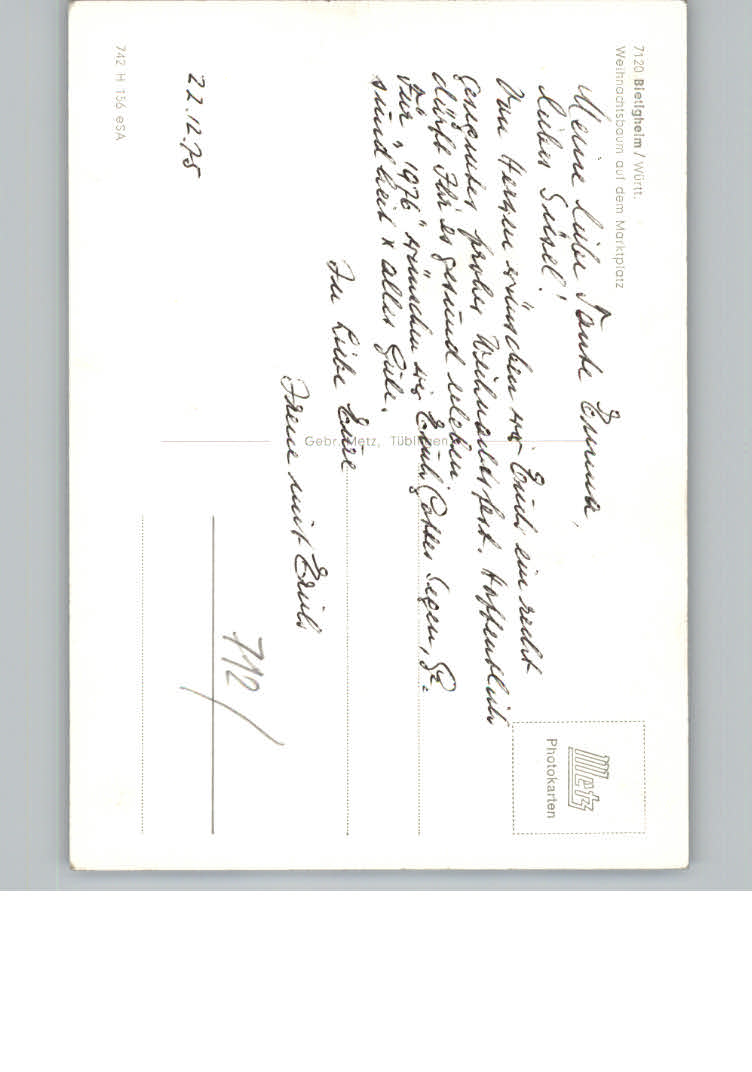 7120 Bietigheim / Württ.
Weihnachtsbaum auf dem Marktplatz
Meine liebe Tante Emma,
liebes Süsel!
Von Herzen wünschen wir Euch ein recht
gesegnetes frohes Weihnachtsfest. Hoffentlich
dürft Ihr es gesund erleben.
Für „1976" wünschen wir Euch Gottes Segen, Ge-
sundheit & alles Gute.
In Liebe Eure
Irene mit Erich
22.12.75
742 H 156 eSA
Gebr. Metz, Tübingen
Metz
Photokarten
712/